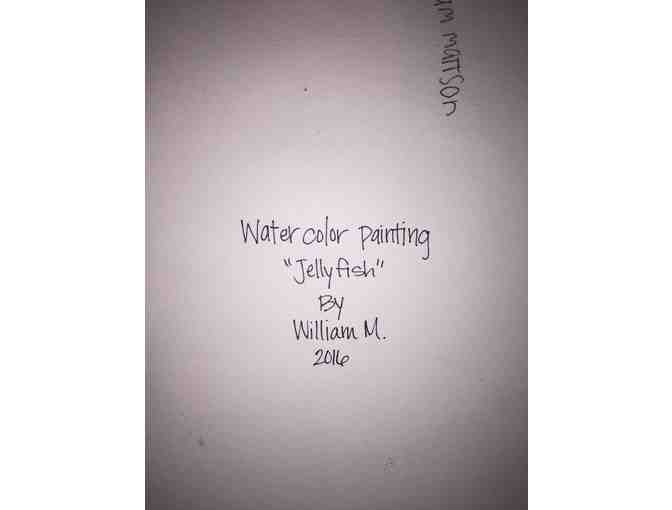 mattson
Watercolor painting
"Jellyfish"
By
William M.
2016